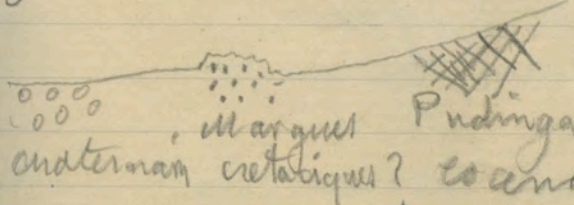 Margues Pudinga
quaternain cretaciques? eocene